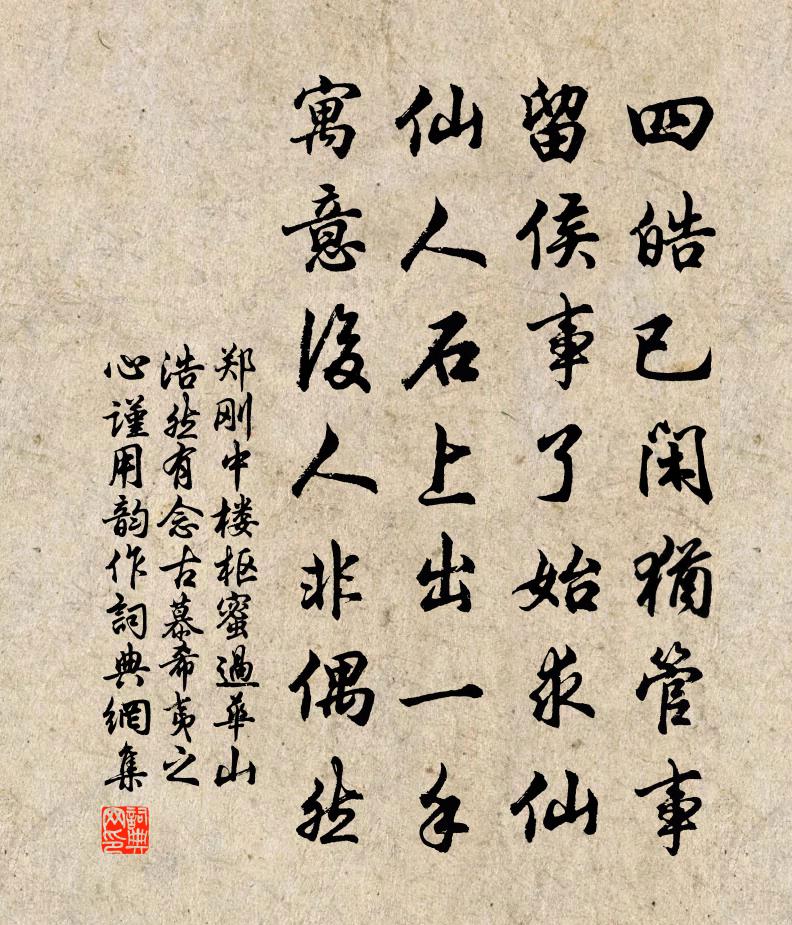 四皓已闲猶管事
留侯事了始求仙
仙人石上出一手
寓意後人非偶然
郑刚中楼枢蜜過華山
浩然有念古慕希夷之
心謹用韵作詞典網集
詞典网印